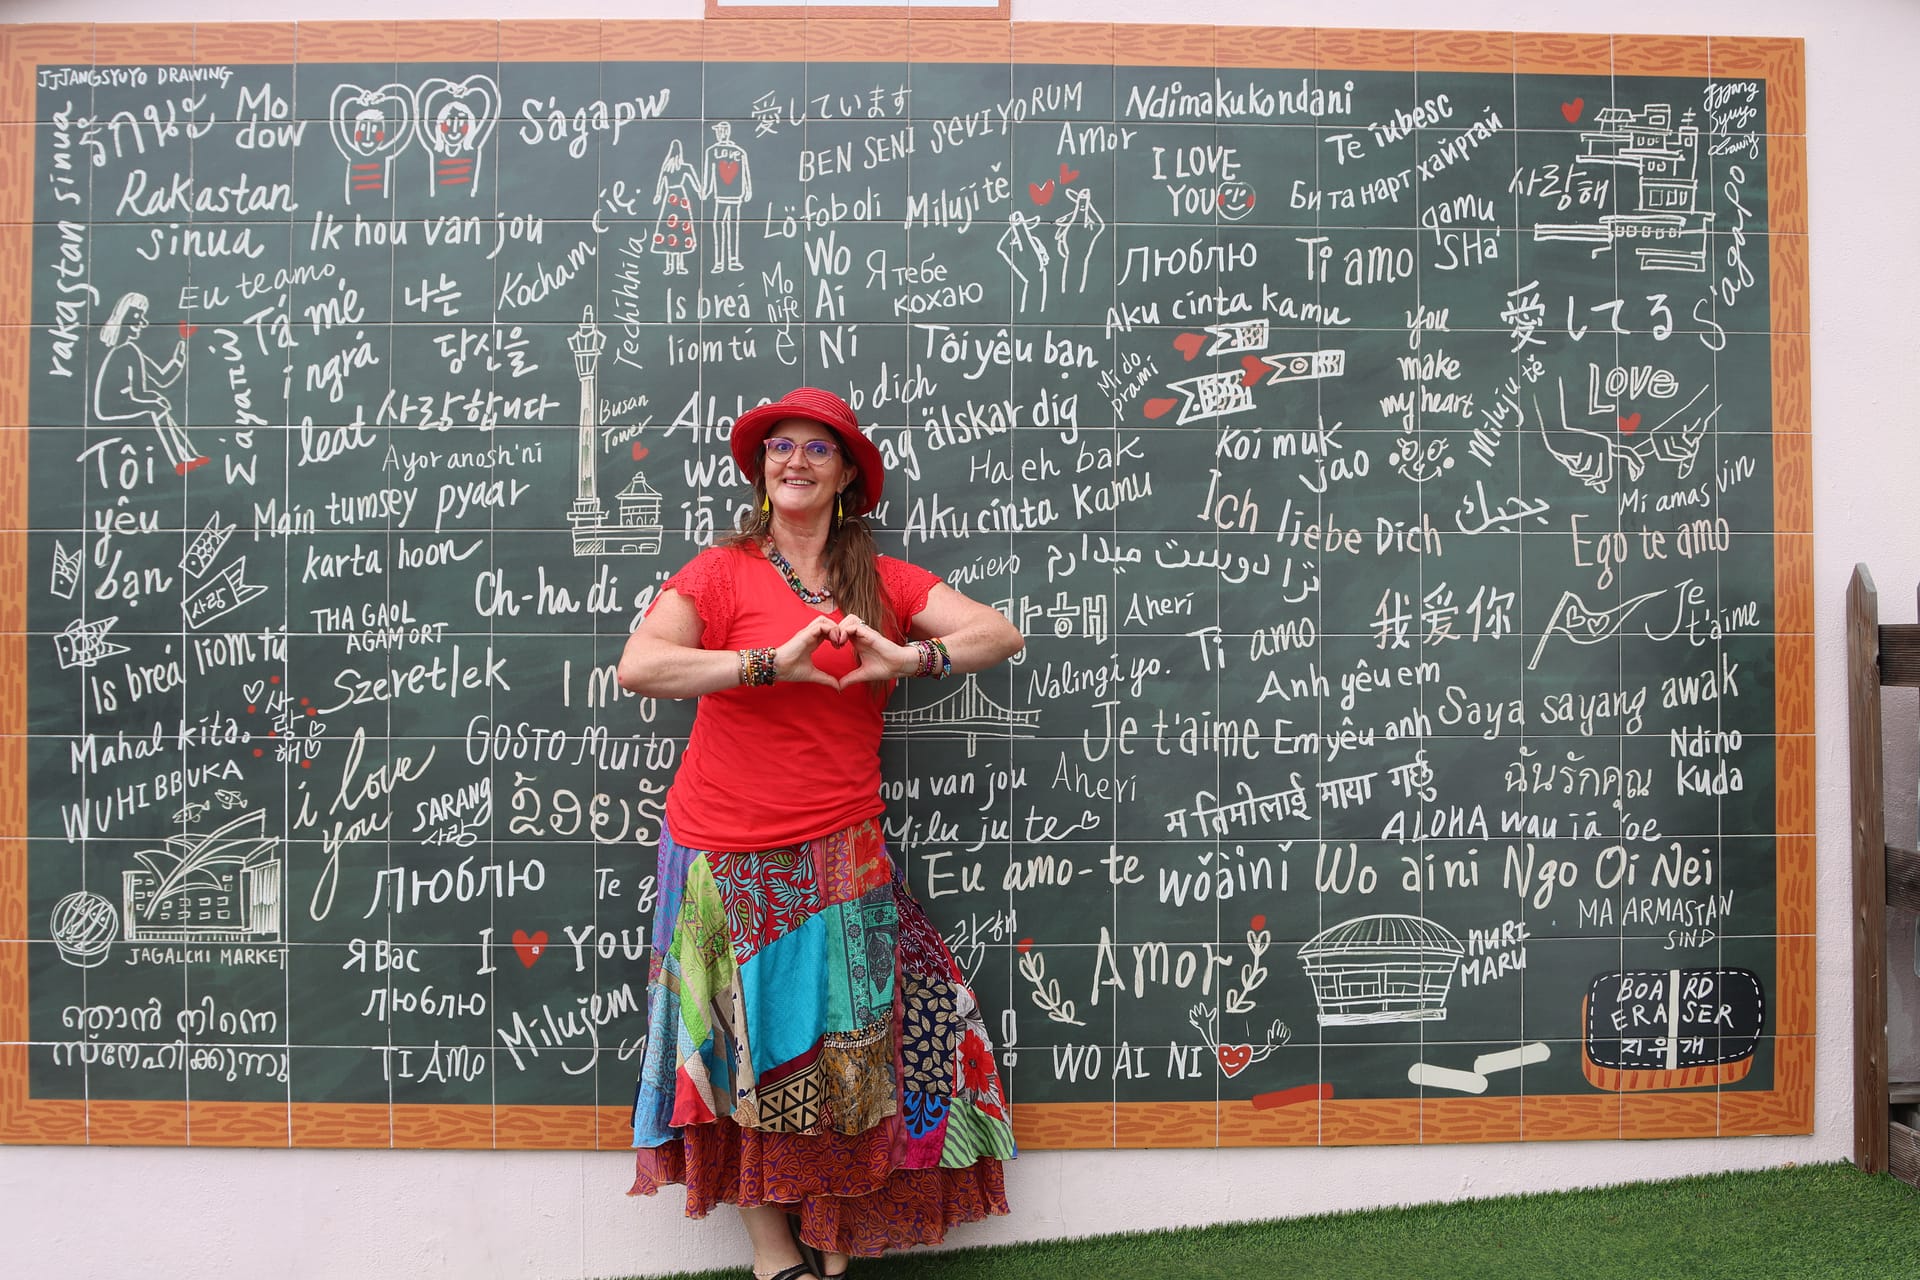 JJJANGSYUYO DRAWING
rakastan sinua
รักนะ
Mo
dow
Ságapw
愛しています
BEN SENI SEVIYORUM
Amor
Ndimakukondani
Te iubesc
Би та нарт хайртай
Jjjang
Syuyo
drawing
LOVE
I LOVE
YOU
사랑해
qamu
SHa'
S'agapo
Rakastan
sinua
Ik hou van jou
Kocham Cię
Techihhila
Lö fob oli
Miluji tě
Wo
Ai
Ni
Я тебе
кохаю
Люблю
Ti amo
Eu te amo
Tá mé
i ngrá
leat
나는
당신을
사랑합니다
Is breá
liom tú
Mo
nife
e
Tôi yêu bạn
Aku cinta kamu
you
make
my heart
愛してる
Mi do
prami
Miluju tě
Love
Wáyatiŋ
Busan
Tower
Tag älskar dig
Koi muk
jao
Tôi
yêu
bạn
Ayor anosh'ni
Ha eh bak
Main tumsey pyaar
karta hoon
Aku cinta Kamu
Ich liebe Dich
بحبك
Mi amas vin
Ego te amo
사랑
Ch-ha di
quiero
ترا دوست میدارم
THA GAOL
AGAM ORT
Aheri
Ti amo
我爱你
Je
t'aime
Is breá liom tú
Szeretlek
Nalingi yo.
Anh yêu em
Saya sayang awak
Mahal kita.
사랑해
GOSTO Muito
Je t'aime
Em yêu anh
Ndino
Kuda
WUHIBBUKA
i love
you
SARANG
사랑
hou van jou
Aheri
म तिमीलाई माया गर्छु
ฉันรักคุณ
Milu ju te
ALOHA wau iā 'oe
Люблю
Te
Eu amo-te
wǒàinǐ
Wo ai ni
Ngo Oi Nei
MA ARMASTAN
SIND
JAGALCHI MARKET
Я Вас
люблю
I
YOU
Amor
NURI
MARU
ഞാൻ നിന്നെ
സ്നേഹിക്കുന്നു
TI Amo
Milujem
WO AI NI
BOARD
ERASER
지우개